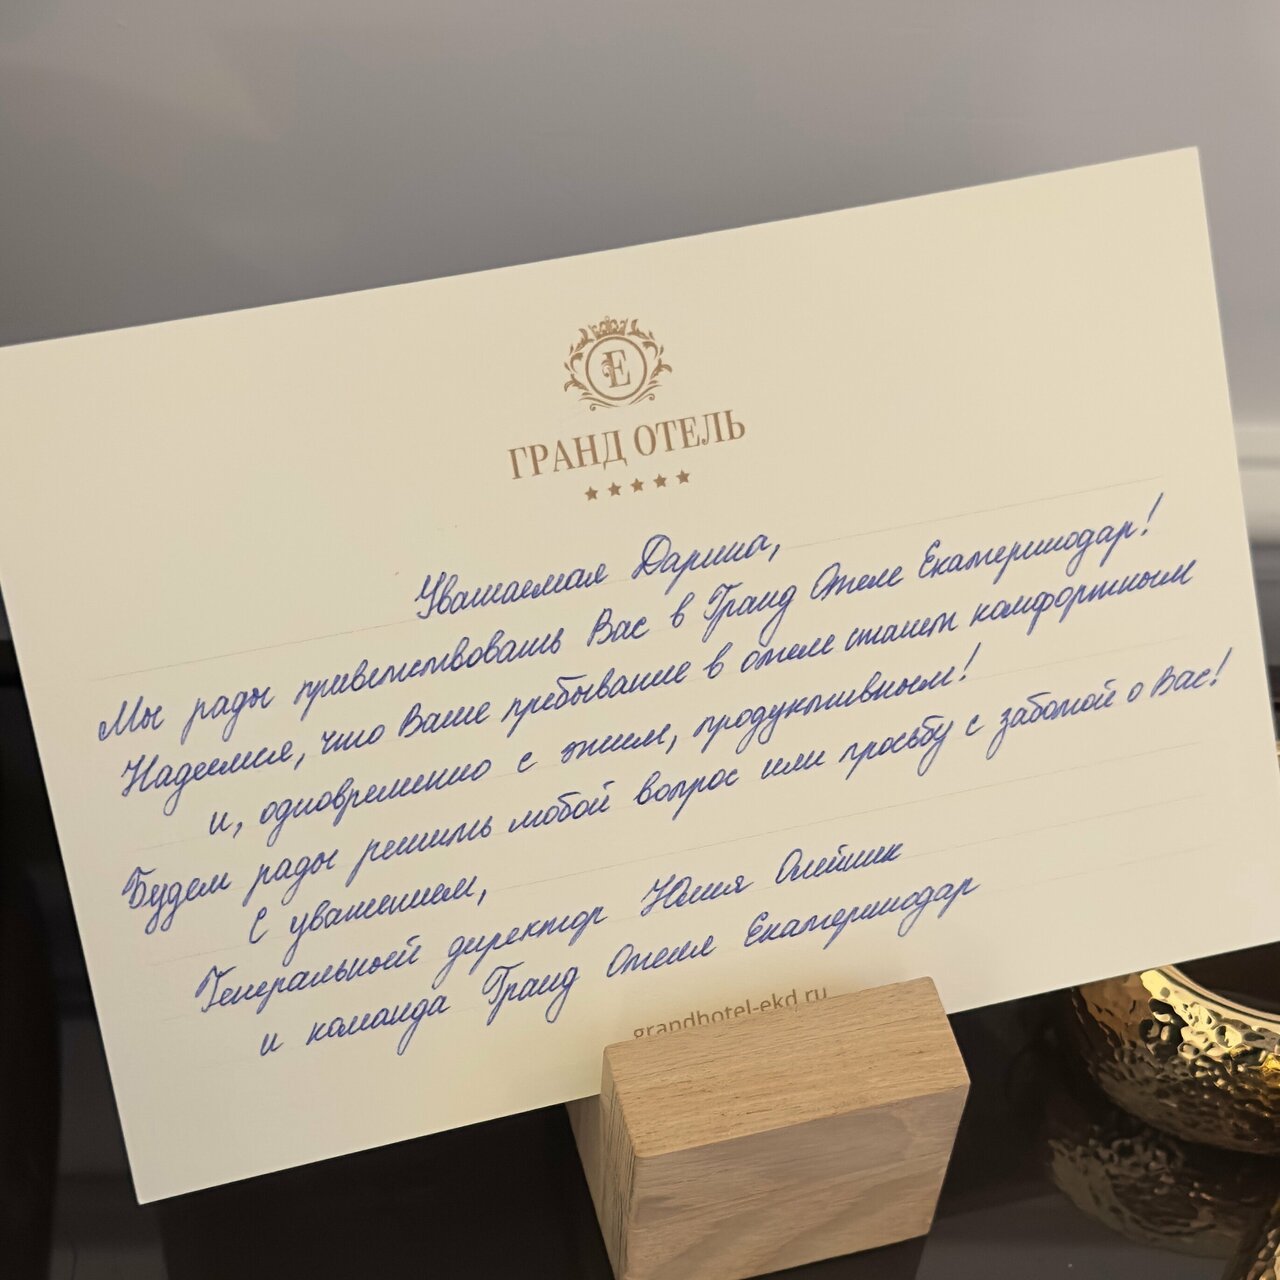 E
ГРАНД ОТЕЛЬ
Уважаемая Дарина,
Мы рады приветствовать Вас в Гранд Отеле Екатеринодар!
Надеемся, что Ваше пребывание в отеле станет комфортным
и, одновременно с этим, продуктивным!
Будем рады решить любой вопрос или просьбу с заботой о Вас!
С уважением,
Генеральный директор Юлия Олейник
и команда Гранд Отеля Екатеринодар
grandhotel-ekd.ru